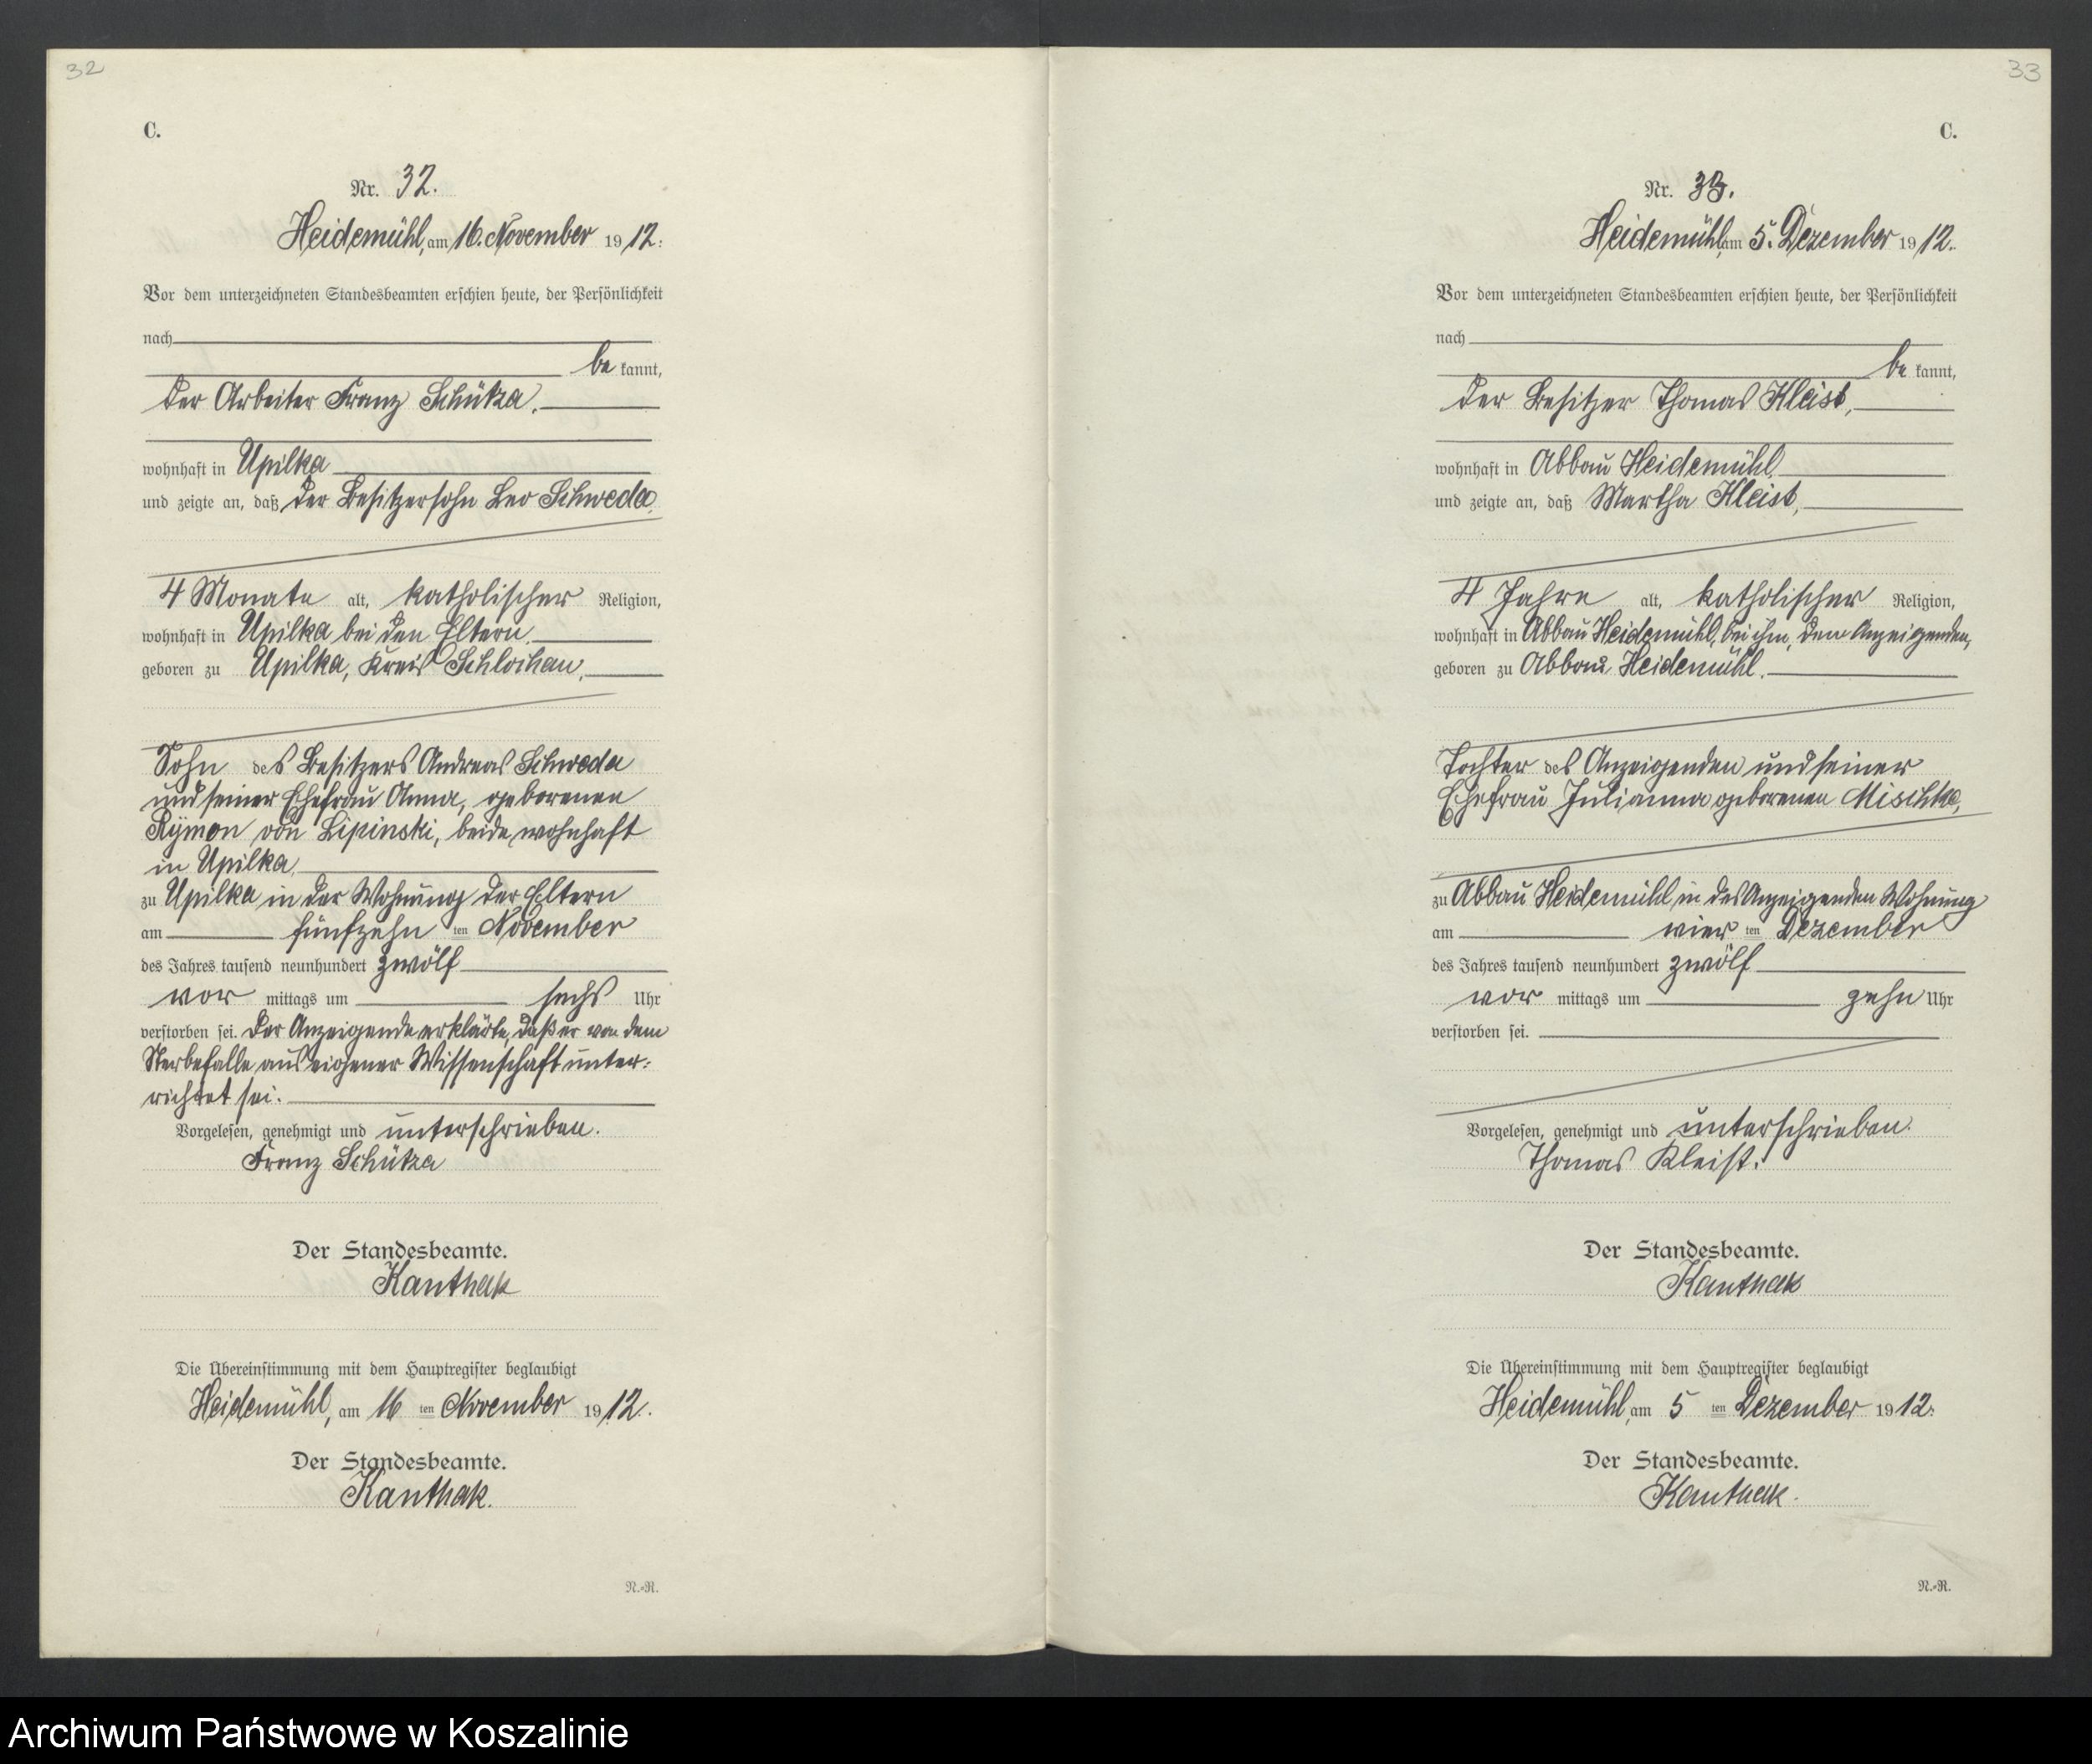 32
C.
Nr. 32.
Heidemühl, am 16. November 1912.
Vor dem unterzeichneten Standesbeamten erschien heute, der Persönlichkeit
nach
be kannt,
der Arbeiter Franz Schütza,
wohnhaft in Upilka
und zeigte an, daß der Besitzersohn Leo Schweda
4 Monate alt, katholischer Religion,
wohnhaft in Upilka bei den Eltern,
geboren zu Upilka, Kreis Schlochau,
Sohn des Besitzers Andreas Schweda
und seiner Ehefrau Anna, geborenen
Rymon von Lipinski, beide wohnhaft
in Upilka,
zu Upilka in der Wohnung der Eltern
am fünfzehn ten November
des Jahres tausend neunhundert zwölf
vor mittags um sechs Uhr
verstorben sei. Der Anzeigende erklärte, daß er von dem
Sterbefalle aus eigener Wissenschaft unter-
richtet sei.
Vorgelesen, genehmigt und unterschrieben.
Franz Schütza
Der Standesbeamte.
Kanthak
Die Übereinstimmung mit dem Hauptregister beglaubigt
Heidemühl, am 16 ten November 1912.
Der Standesbeamte.
Kanthak.
N.-R.
33
C.
Nr. 33.
Heidemühl, am 5. Dezember 1912.
Vor dem unterzeichneten Standesbeamten erschien heute, der Persönlichkeit
nach
be kannt,
der Besitzer Thomas Kleist,
wohnhaft in Abbau Heidemühl
und zeigte an, daß Martha Kleist,
4 Jahre alt, katholischer Religion,
wohnhaft in Abbau Heidemühl, bei ihm, dem Anzeigenden,
geboren zu Abbau Heidemühl,
Tochter des Anzeigenden und seiner
Ehefrau Julianna geborenen Mischke,
zu Abbau Heidemühl in des Anzeigenden Wohnung
am vier ten Dezember
des Jahres tausend neunhundert zwölf
vor mittags um zehn Uhr
verstorben sei.
Vorgelesen, genehmigt und unterschrieben.
Thomas Kleist.
Der Standesbeamte.
Kanthak
Die Übereinstimmung mit dem Hauptregister beglaubigt
Heidemühl, am 5 ten Dezember 1912.
Der Standesbeamte.
Kanthak.
N.-R.
Archiwum Państwowe w Koszalinie